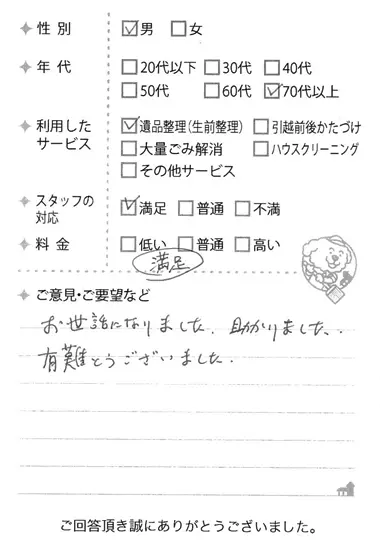 性別 ☑男 □女
年代 □20代以下 □30代 □40代
□50代 □60代 ☑70代以上
利用した
サービス
☑遺品整理(生前整理) □引越前後かたづけ
□大量ごみ解消 □ハウスクリーニング
□その他サービス
スタッフの
対応
☑満足 □普通 □不満
料金 □低い □普通 □高い
満足
ご意見・ご要望など
お世話になりました、助かりました、、
有難とうございました.
ご回答頂き誠にありがとうございました。